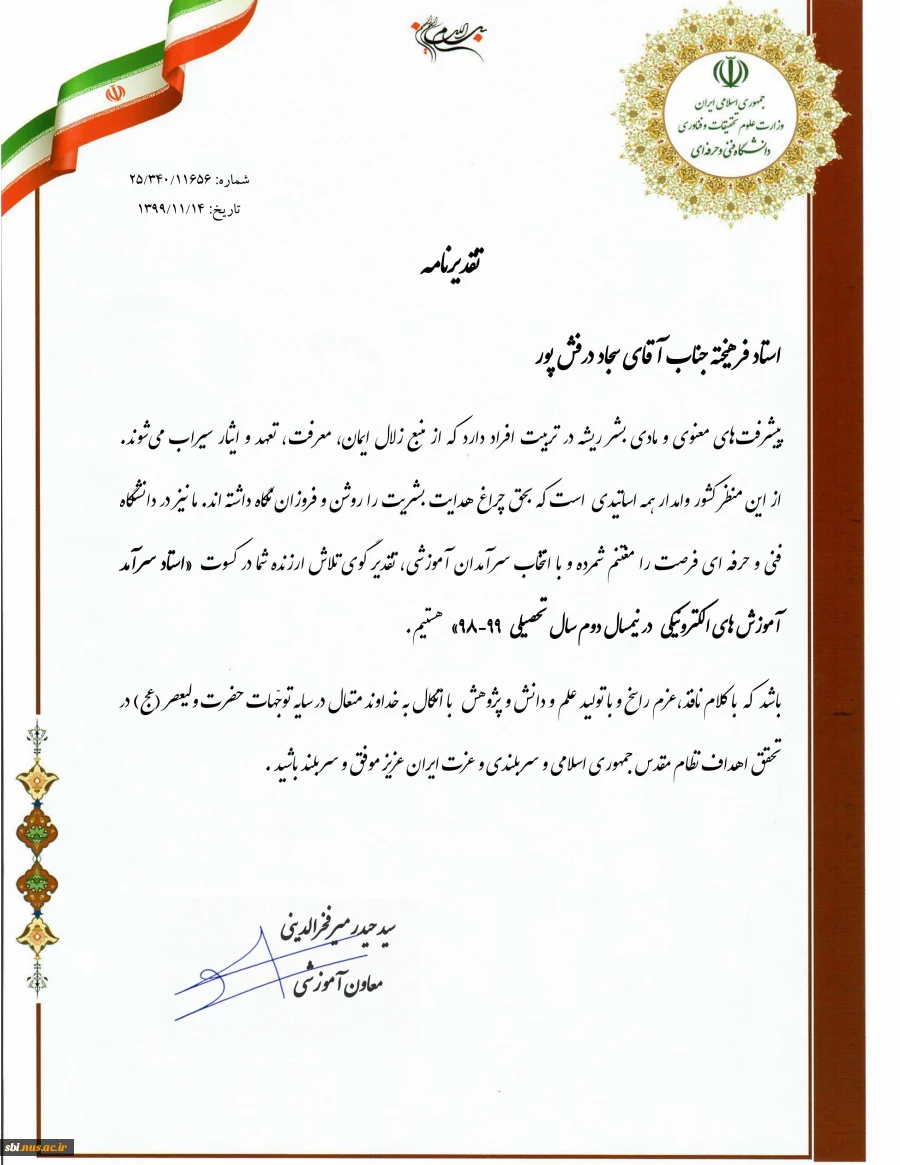 بسم الله الرحمن الرحیم
جمهوری اسلامی ایران
وزارت علوم تحقیقات و فناوری
دانشگاه فنی و حرفه ای
شماره: ۲۵/۳۴۰/۱۱۶۵۶
تاریخ: ۱۳۹۹/۱۱/۱۴
تقدیرنامه
استاد فرهیخته جناب آقای سجاد درفش پور
پیشرفت‌های معنوی و مادی بشر ریشه در تربیت افراد دارد که از منبع زلال ایمان، معرفت، تعهد و ایثار سیراب می‌شوند.
از این منظر کشور وامدار همه اساتیدی است که بحق چراغ هدایت بشریت را روشن و فروزان نگاه داشته اند. ما نیز در دانشگاه
فنی و حرفه ای فرصت را مغتنم شمرده و با انتخاب سرآمدان آموزشی، تقدیر گوی تلاش ارزنده شما در کسوت «استاد سرآمد
آموزش های الکترونیکی در نیمسال دوم سال تحصیلی ۹۹-۹۸» هستیم.
باشد که با کلام نافذ، عزم راسخ و با تولید علم و دانش و پژوهش با اتکال به خداوند متعال در سایه توجّهات حضرت ولیعصر (عج) در
تحقق اهداف نظام مقدس جمهوری اسلامی و سربلندی و عزت ایران عزیز موفق و سربلند باشید.
سید حیدر میرفخرالدینی
معاون آموزشی
sbi.nus.ac.ir